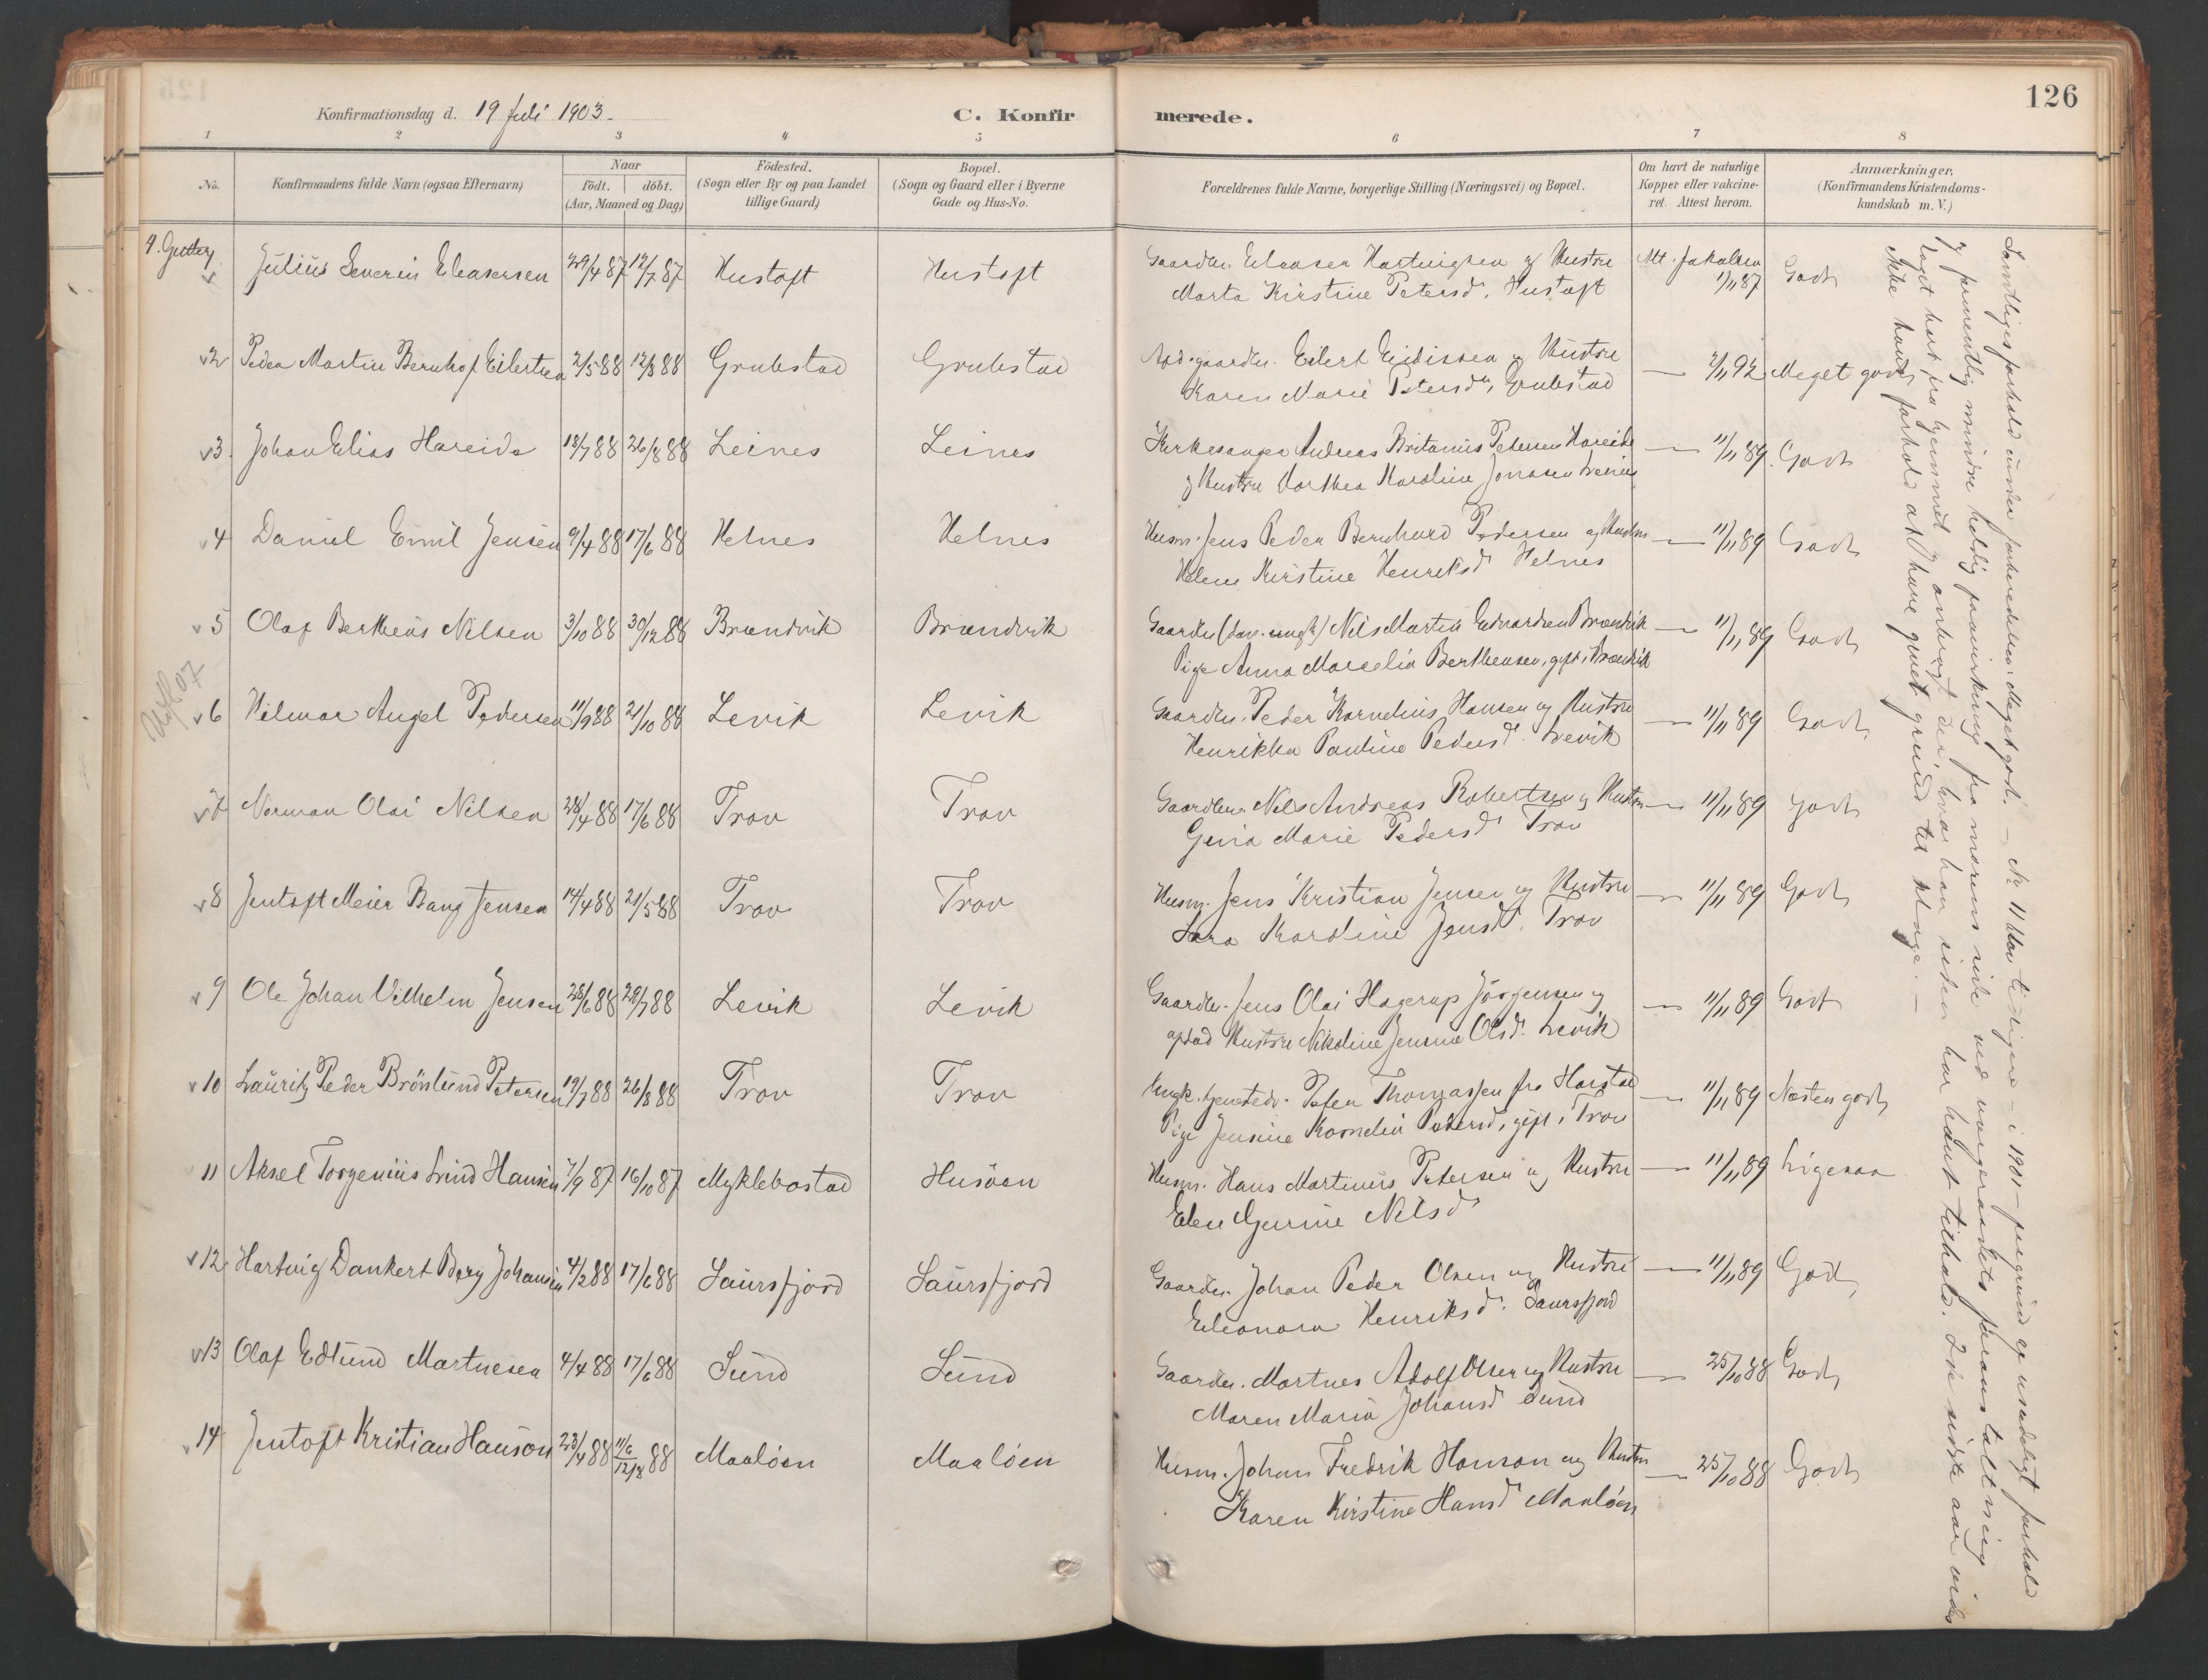 126
Konfirmationsdag d. 19 Juli 1903.
C. Konfirmerede.
1 2 3 4 5 6 7 8
No.
Konfirmandens fulde Navn (ogsaa Efternavn)
Naar
födt. döbt.
(Aar, Maaned og Dag)
Födested.
(Sogn eller By og paa Landet
tillige Gaard)
Bopæl.
(Sogn og Gaard eller i Byerne
Gade og Hus-No.
Forældrenes fulde Navne, borgerlige Stilling (Næringsvei) og Bopæl.
Om havt de naturlige
Kopper eller vakcine-
ret. Attest herom.
Anmærkninger.
(Konfirmandens Kristendoms-
kundskab m. V.)
Gutter
1 Julius Severin Eleasersen 29/4 87 12/7 87 Hustoft Hustoft Gaardbr. Eleaser Hartvigsen og Hustru Att. Jakobsen 1/11 87 Godt
Marta Kirstine Petersd. Hustoft
2 Peder Martin Bernhof Eilertsen 2/5 88 12/8 88 Grubstad Grubstad Eilert Eidissen og Hustru — 2/11 92 Meget godt
Karen Marie Petersd., Grubstad
3 Johan Elias Hareide 18/7 88 26/8 88 Leines Leines Kirkesanger Andreas Britanius Petersen Hareide — 11/11 89. Godt
og Hustru Dorthea Karoline Jonasen Leines
4 Daniel Emil Jensen 9/4 88 17/6 88 Helnes Helnes Husm. Jens Peder Bernhard Pedersen og Hustru — 11/11 89 Godt
Helene Kirstine Henriksd Helnes
5 Olaf Bertheus Nilsen 3/10 88 30/12 88 Brændvik Brændvik Gaardbr. Nils Martin Edvardsen Brændvik — 11/11 89 Godt
Pige Anna Marselia Berthensen, gift, Brændvik
Utfl. 07
6 Hilmar Angel Pedersen 11/9 88 21/10 88 Levik Levik Gaardbr. Peder Kornelius Hansen og Hustru — 11/11 89 Godt
Henrikka Pauline Pedersd. Levik
7 Norman Olai Nilsen 28/4 88 17/6 88 Trov Trov Gaardbr. Nils Andreas Robertsen og Hustru — 11/11 89 Godt
Marie Pedersd Trov
8 Jentoft Meier Bang Jensen 14/4 88 21/5 88 Trov Trov Husm. Jens Kristian Jensen og Hustru — 11/11 89 Godt
Sara Karoline Jensd. Trov
9 Ole Johan Vilhelm Jensen 28/6 88 29/7 88 Levik Levik Gaardbr. Jens Olai Hagerup Jörgensen og — 11/11 89 Godt
Hustru Nikoline Jensine Olsd. Levik
10 Lauritz Peder Brönlund Petersen 19/7 88 26/8 88 Trov Trov Ungk. Peter Thomassen fra Harstad — 11/11 89 Næsten godt
Pige Jensine Kornelia Pedersd, gift, Trov
11 Aksel Torgenius Lind Hansen 7/9 87 16/10 87 Myklebostad Husöen Husm. Hans Martinius Petersen og Hustru — 11/11 89 Ligesaa
Elen Gurine Nilsd
12 Hartvig Dankert Berg Johansen 4/2 88 17/6 88 Saursfjord Saursfjord Gaardbr. Johan Peder Olsen og Hustru — 11/11 89 Godt
Eleonora Henriksd. Saursfjord
13 Olaf Edlund Martnesen 4/4 88 17/6 88 Sund Sund Gaardbr. Martnes Adolf Olsen og Hustru — 25/10 88 Godt
Maren Maria Johansd Sund
14 Jentoft Kristian Hanson 23/4 88 11/6 12/8 88 Maalöen Maalöen Husm. Johan Fredrik Hanson og Hustru — 25/10 88 Godt
Karen Kirstine Hansd Maalöen
Samtliges forhold under forberedelsen: Meget godt. — No 11 blev tidligere – i 1901 – paagrund af usædeligt forhold
og formentlig mindre heldig paavirkning fra morens side ved vergeraadets foranstaltning
taget bort fra hjemmet og anbragt der, hvor han siden har havt tilhold. I de sidste aar vides
ikke hans forhold at have givet grund til klage. —